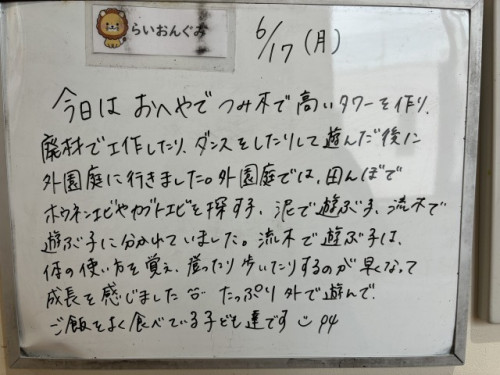 らいおんぐみ
6/17(月)
今日は おへやで つみ木で高いタワーを作り、
廃材で工作したり、ダンスをしたりして遊んだ後に
外園庭に行きました。外園庭では、田んぼで
ホウネンエビやカブトエビを探す子、泥で遊ぶ子、流木で
遊ぶ子に分かれていました。流木で遊ぶ子は、
体の使い方を覚え、登ったり歩いたりするのが早くなって
成長を感じました たっぷり外で遊んで
ご飯をよく食べている子ども達です